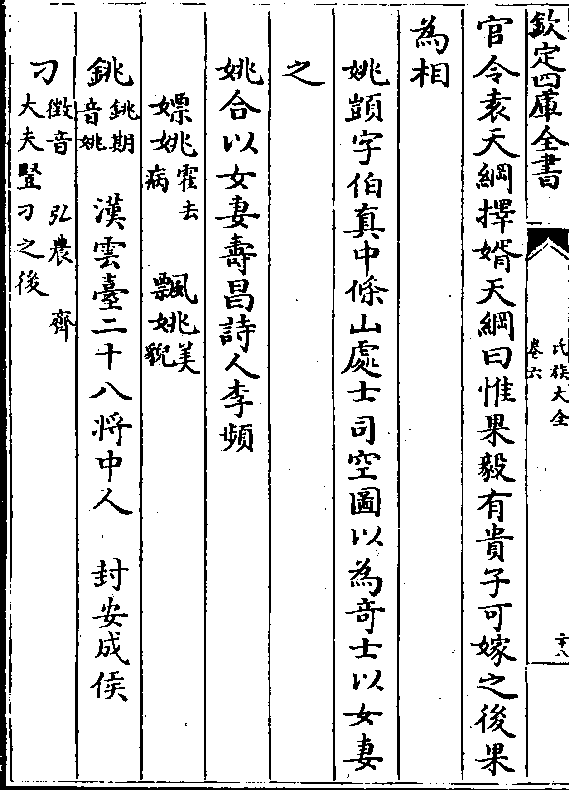 欽定四庫全書
氏族大全
卷六
二十八
官令袁天綱擇婿天綱曰惟果毅有貴子可嫁之後果
為相
姚顗字伯真中條山處士司空圖以為奇士以女妻
之
姚合以女妻壽昌詩人李頻
嫖姚霍去病 飄姚美貌
銚銚期音姚 漢雲臺二十八將中人 封安成侯
刁徵音 弘農 齊大夫豎刁之後